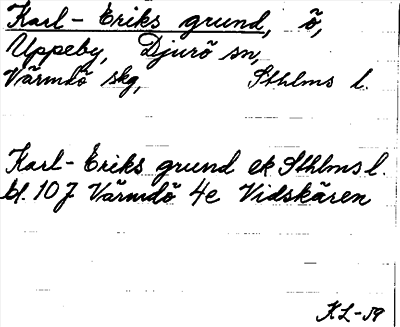 Karl-Eriks grund, ö,
Uppeby, Djurö sn,
Värmdö skg, Sthlms l.
Karl-Eriks grund ek Sthlms l.
bl. 107 Värmdö 4e Vidskären
KL-59